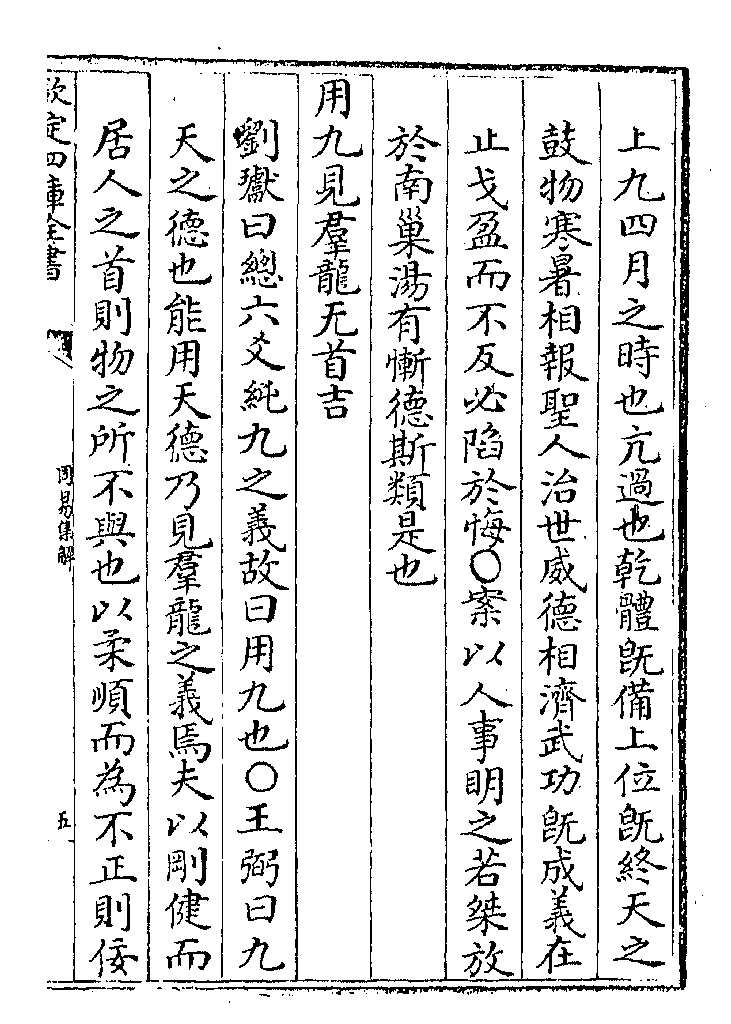 上九四月之時也亢過也乾體旣備上位旣終天之
鼓物寒暑相報聖人治世威德相濟武功旣成義在
止戈盈而不反必陷於悔○案以人事明之若桀放
於南巢湯有慚德斯類是也
用九見羣龍无首吉
劉瓛曰總六爻純九之義故曰用九也○王弼曰九
天之德也能用天德乃見羣龍之義焉夫以剛健而
居人之首則物之所不與也以柔順而為不正則佞
欽定四庫全書
周易集解
五